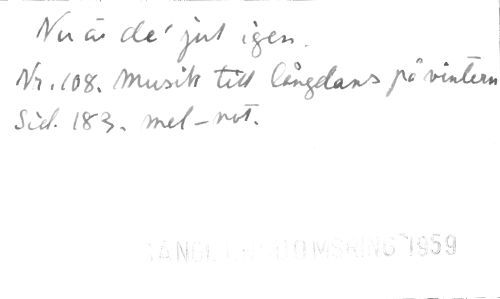 Nu är de' jul igen.
Nr. 108. Musik till långdans på vintern
Sid. 183. mel-not.
1959